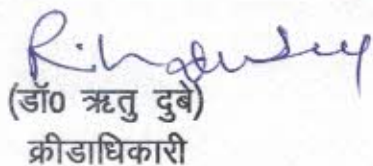 (डॉ0 ऋतु दुबे)
क्रीडाधिकारी